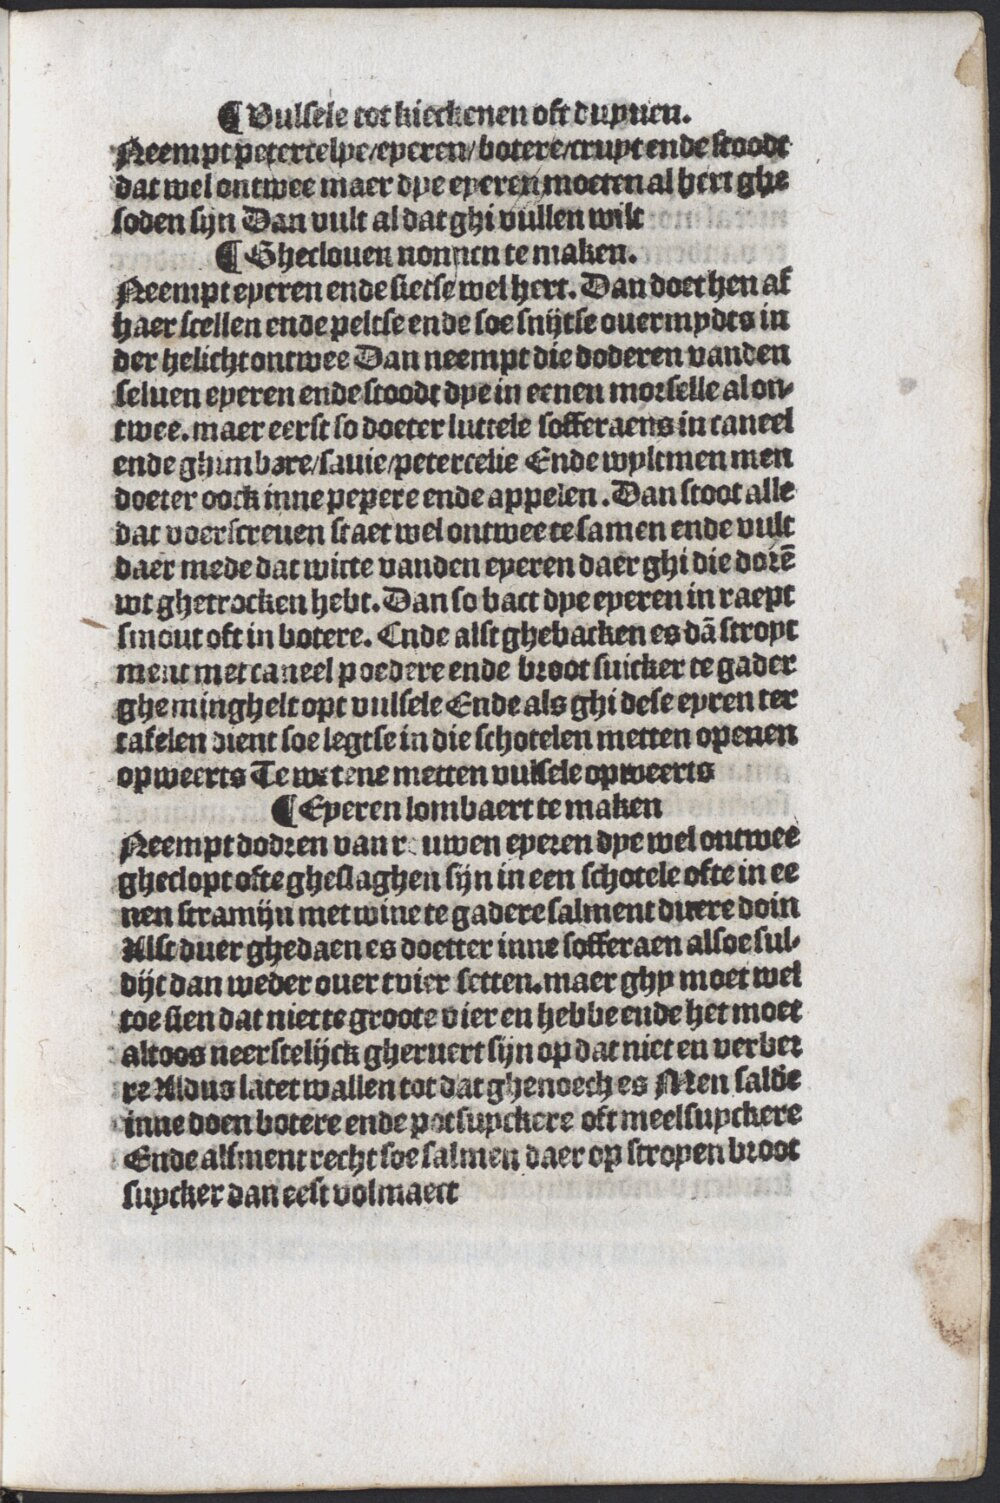 ¶ Vulsele tot kieckenen oft duyuen.
Neempt petercelye/eyeren/botere/cruyt ende stoodt
dat wel ontwee maer dye eyeren moeten al hert ghe
soden sijn Dan vult al dat ghi vullen wilt
¶ Ghecloven nonnen te maken.
Neempt eyeren ende sietse wel hert. Dan doet hen af
haer scellen ende peltse ende soe snijtse ouermydts in
der helicht ontwee Dan neempt die doderen vanden
seluen eyeren ende stoodt dye in eenen morselle al on-
twee. maer eerst so doeter luttele sofferaens in caneel
ende ghinbare/sauie/petercelie Ende wyltmen men
doeter oock inne pepere ende appelen. Dan stoot alle
dat voerscreuen staet wel ontwee te samen ende vult
daer mede dat witte vanden eyeren daer ghi die dorē
wt ghetrocken hebt. Dan so bact dye eyeren in raept
smout oft in botere. Ende alst ghebacken es dā stroyt
ment met caneel poedere ende broot suicker te gader
ghe minghelt opt vulsele Ende als ghi dese eyren ter
tafelen dient soe legtse in die schotelen metten openen
opweerts Te wetene metten vulsele opweerts
¶ Eyeren lombaert te maken
Neempt dodren van r uwen eyeren dye wel ontwee
gheclopt ofte gheslaghen sijn in een schotele ofte in ee
nen stramijn met wine te gadere salment duere doin
Alst duer ghedaen es doetter inne sofferaen alsoe sul-
dijt dan weder ouer tvier setten. maer ghy moet wel
toe sien dat niet te groote vier en hebbe ende het moet
altoos neerstelijck gheruert sijn op dat niet en verber
re Aldus latet wallen tot dat ghenoech es Men salder
inne doen botere ende potsuyckere oft meelsuyckere
Ende alsment recht soe salmen daer op stroyen broot
suycker dan eest volmaect